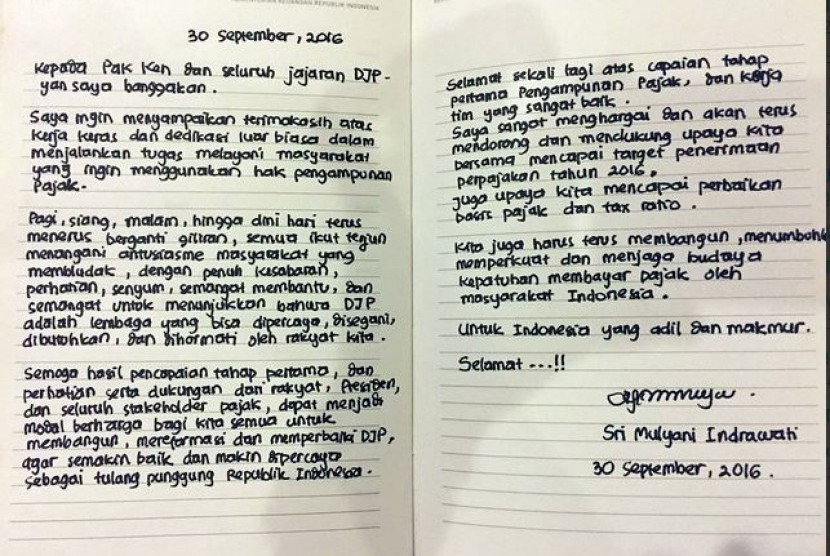 KEUANGAN REPUBLIK INDONESIA
30 September, 2016
Kepada Pak Ken dan seluruh jajaran DJP -
yan saya banggakan.
Saya ingin menyampaikan terimakasih atas
kerja keras dan dedikasi luar biasa dalam
menjalankan tugas melayani masyarakat
yang ingin menggunakan hak pengampunan
pajak.
Pagi, siang, malam, hingga dini hari terus
menerus berganti giliran, semua ikut terjun
menangani antusiasme masyarakat yang
membludak, dengan penuh kesabaran,
perhatian, senyum, semangat membantu, dan
semangat untuk menunjukkan bahwa DJP
adalah lembaga yang bisa dipercaya, disegani,
dibutuhkan, dan dihormati oleh rakyat kita.
Semoga hasil pencapaian tahap pertama, dan
perhatian serta dukungan dari rakyat, Presiden,
dan seluruh stakeholder pajak, dapat menjadi
modal berharga bagi kita semua untuk
membangun, mereformasi dan memperbaiki DJP,
agar semakin baik dan makin dipercaya
sebagai tulang punggung Republik Indonesia.
Selamat sekali lagi atas capaian tahap
pertama Pengampunan Pajak, dan kerja
tim yang sangat baik.
Saya sangat menghargai dan akan terus
mendorong dan mendukung upaya kita
bersama mencapai target penerimaan
perpajakan tahun 2016,
juga upaya kita mencapai perbaikan
basis pajak dan tax ratio.
Kita juga harus terus membangun, menumbuhk
memperkuat dan menjaga budaya
kepatuhan membayar pajak oleh
masyarakat Indonesia.
Untuk Indonesia yang adil dan makmur.
Selamat ---!!
Sri Mulyani Indrawati
30 September, 2016.